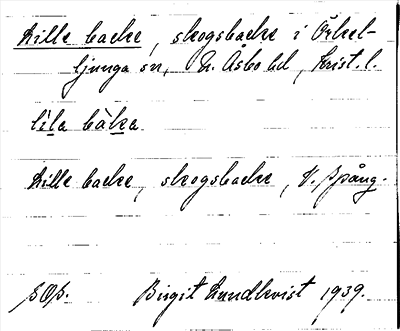 Lille backe, skogsbacke i Örkel-
ljunga sn, N. Åsbo hd, Krist. l.
lìla bàka
Lille backe, skogsbacke, V. Spång.
SOS. Birgit Lundkvist 1939.